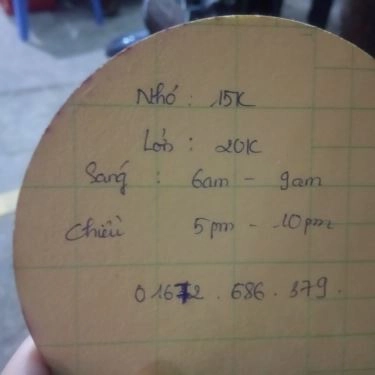 Nhỏ : 15K
Lớn : 20K
Sáng : 6am - 9am
Chiều 5pm - 10pm
01672.686.379.